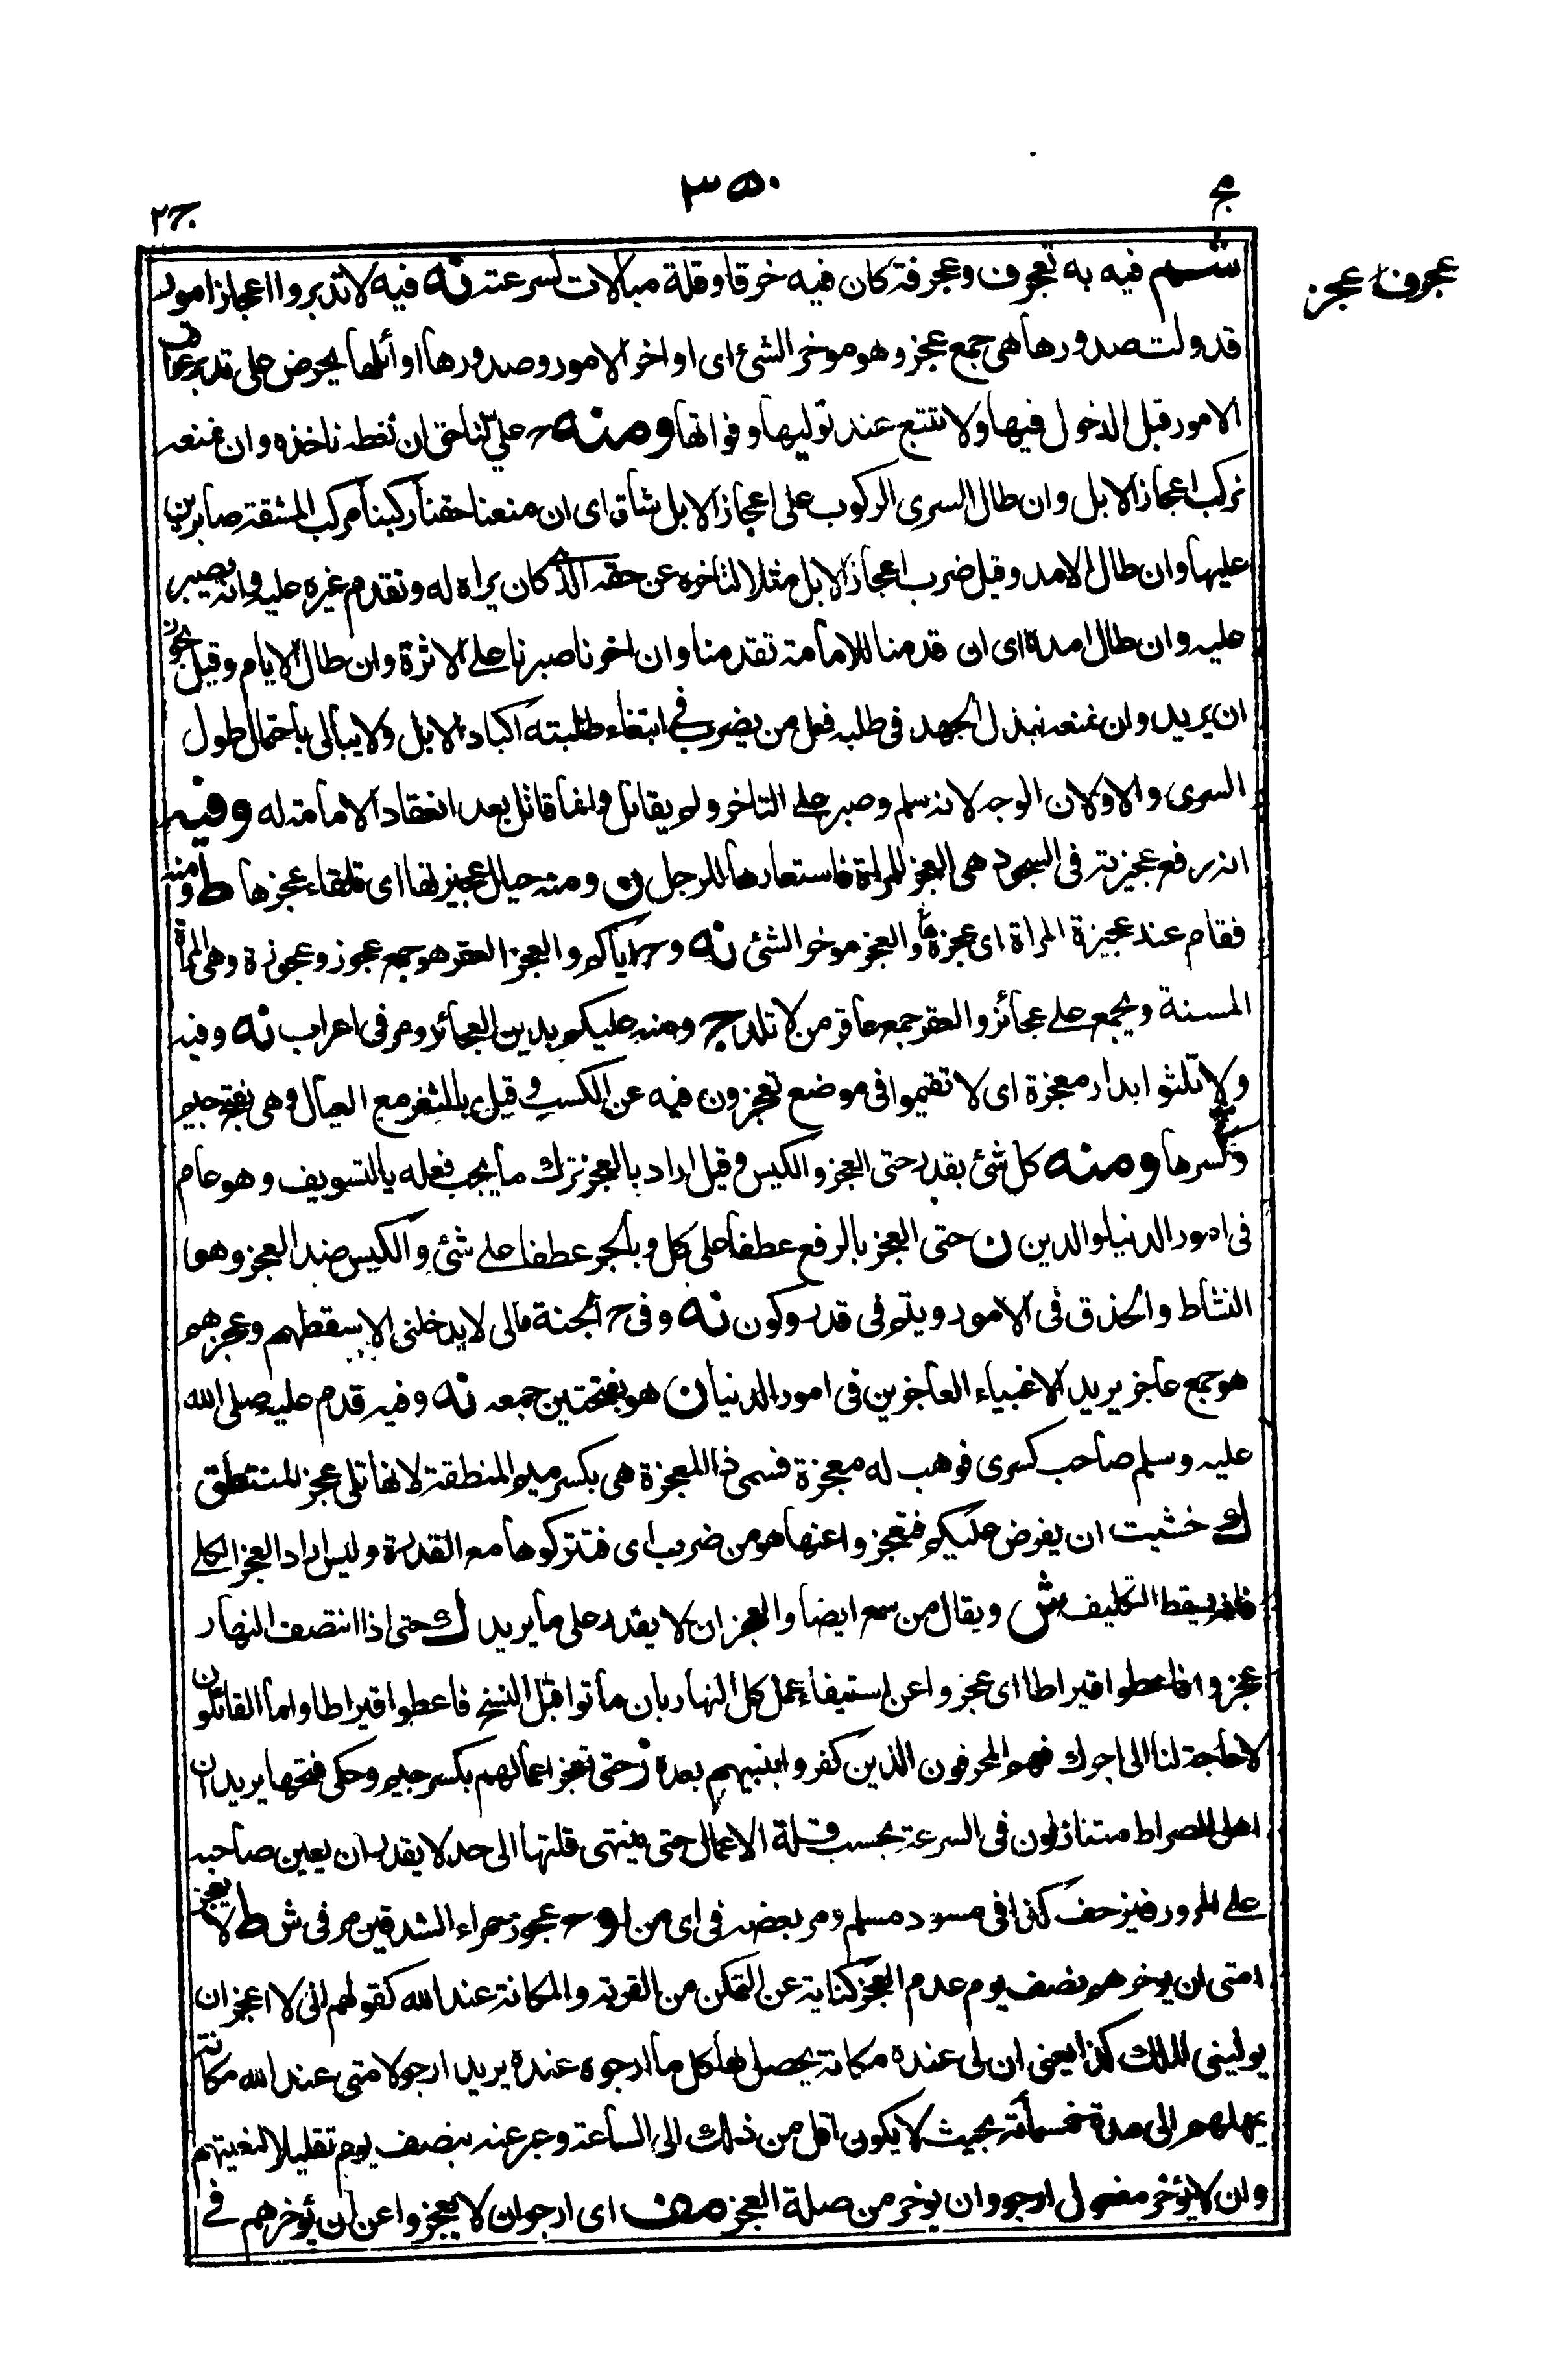 عج
٣٥٠
ج٢
عجرف عجز
شم فيه به تعجرف وعجرفة كان فيه خرقا وقلة مبالات لسرعته نه فيه لا تدبروا اعجاز امور
قد ولت صدورها هي جمع عجز وهو موخر الشئ اى اواخر الامور وصدورها اوائلها يحرض على تدبر عواقب
الامور قبل الدخول فيها ولا تتتبع عند توليها وفواتها ومنه ح علي لنا حق ان نعطه ناخذه وان نمنعه
نركب اعجاز الابل وان طال السرى الركوب على اعجاز الابل شاق اى ان منعنا حقنا ركبنا مركب المشقة صابرين
عليها وان طال الامد وقيل ضرب اعجاز الابل مثلا لتاخره عن حقه الذى كان يراه له وتقدم غيره عليه وانه يصبر
عليه وان طال امده اى ان قدمنا للامامة تقدمنا وان اخرنا صبرنا على الاثرة وان طال الايام وقيل يجوز
ان يريد وان نمنعه نبذل الجهد فى طلبه فعل من يضرب فى ابتغاء طلبته اكباد الابل ولا يبالى باحتمال طول
السرى والاولان الوجه لانه سلم وصبر على التاخر ولم يقاتل وانما قاتل بعد انعقاد الامامة له وفيه
انه رفع عجيزته فى السجود هى العجز للمراة فاستعارها للرجل ن ومنه حيال عجيزتها اى تلقاء عجزها ط ومنه
فقام عند عجيزة المراة اى عجزها والعجز موخر الشئ نه وح اياكم والعجز العقر هو جمع عجوز وعجوزة وهى المراة
المسنة ويجمع على عجائز والعقر جمع عاقر من لا تلد ج ومنه عليكم بدين العجائز ومر فى اعراب نه وفيه
ولا تلثوا بدار معجزة اى لا تقيموا فى موضع تعجزون فيه عن الكسب وقيل بالثغر مع العيال وهى بفتح جيم
وكسرها ومنه كل شئ بقدر حتى العجز والكيس وقيل اراد بالعجز ترك ما يجب فعله بالتسويف وهو عام
فى امور الدنيا والدين ن حتى العجز بالرفع عطفا على كل وبالجر عطفا على شئ والكيس ضد العجز وهو
النشاط والحذق فى الامور ويتم فى قدر وكون نه وفى ح الجنة مالى لا يدخلنى الا سقطهم وعجزهم
هو جمع عاجز يريد الاغبياء العاجزين فى امور الدنيا ن هو بفتحتين جمعه نه وفيه قدم عليه صلى الله
عليه وسلم صاحب كسرى فوهب له معجزة فسمى ذا المعجزة هى بكسر ميم المنطقة لانها تلى عجز المنتطق
ك خشيت ان يفرض عليكم فتعجزوا عنها هو من ضرب اى فتتركوها مع القدرة وليس المراد العجز الكلى
فانه يسقط التكليف ش ويقال من سمع ايضا والعجز ان لا يقدر على ما يريد ك حتى اذا انتصف النهار
عجزوا فاعطوا قيراطا اى عجزوا عن استيفاء عمل كل النهار بان ماتوا قبل النسخ فاعطوا قيراطا واما القائلون
لا حاجة لنا الى اجرك فهم المحرفون الذين كفروا بنبيهم بعده ز حتى تعجز اعمالهم بكسر جيم وحكى فتحها يريد ان
اهل الصراط متنازلون فى السرعة بحسب قلة الاعمال حتى ينتهى قلتها الى حد لا يقدر ان يعين صاحبه
على المرور فيزحف كذا فى مسود مسلم ومر بعضه فى اى من او ح عجوز حمراء الشدقين مر فى ش ط لا يعجز
امتى ان يوخر هو نصف يوم عدم العجز كناية عن التمكن من القربة والمكانة عند الله كقولهم انى لا اعجز ان
يولينى الملك كذا يعنى ان لى عنده مكانة يحصل بها كل ما ارجوه عنده يريد ارجو لامتى عند الله مكانة
يمهلهم الى مدة خمسمائة بحيث لا يكون اقل من ذلك الى الساعة وعبر عنه بنصف يوم تقليلا لبغيتهم
وان لا يؤخر مفعول ارجو وان يوخر من صلة العجز مف اى ارجو ان لا يعجزوا عن ان يؤخرهم فى